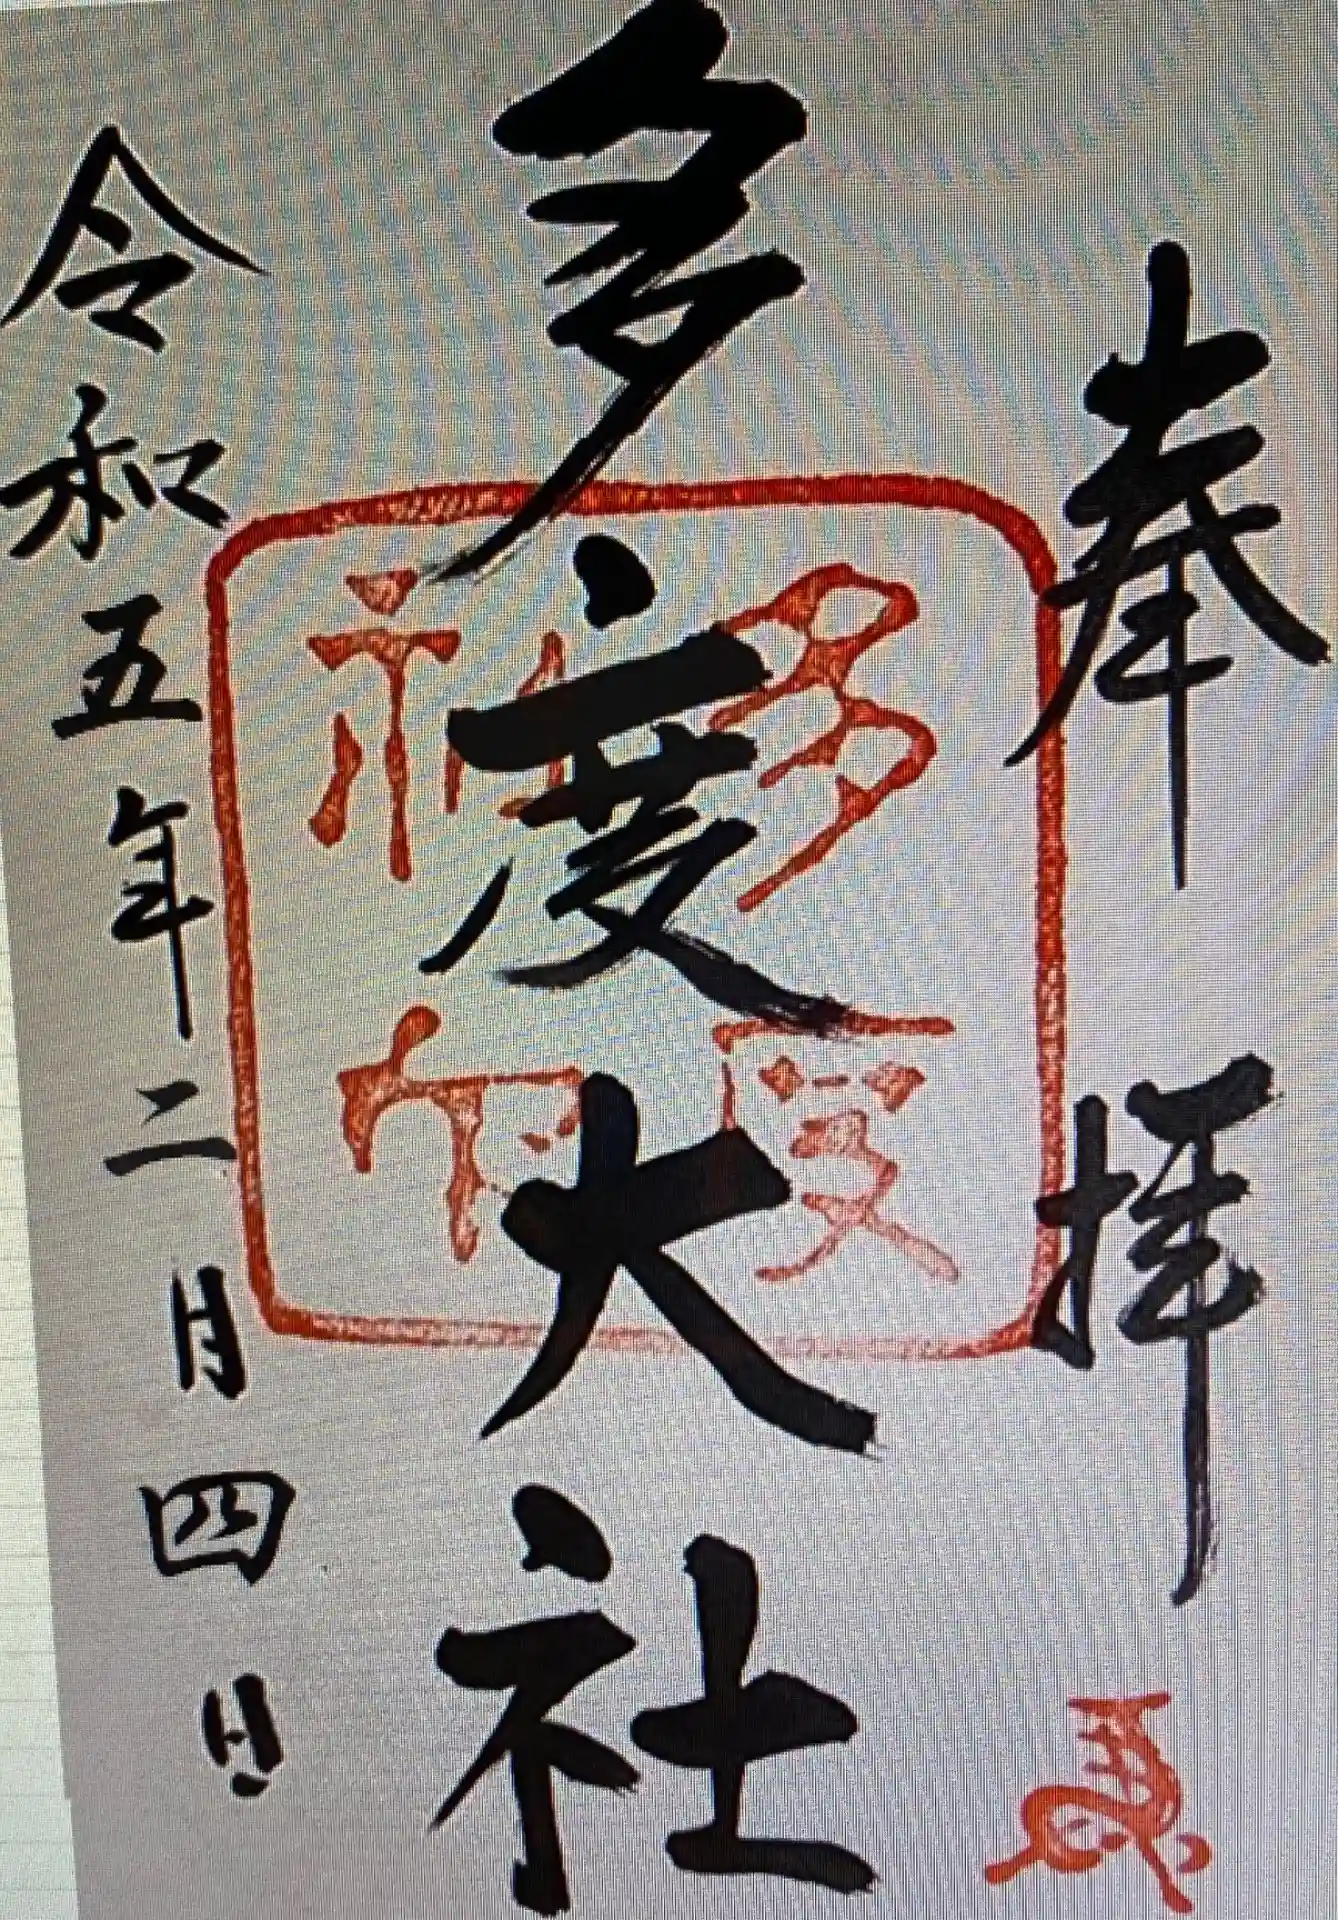 奉拝
多度大社
令和五年二月四日
多度
神社